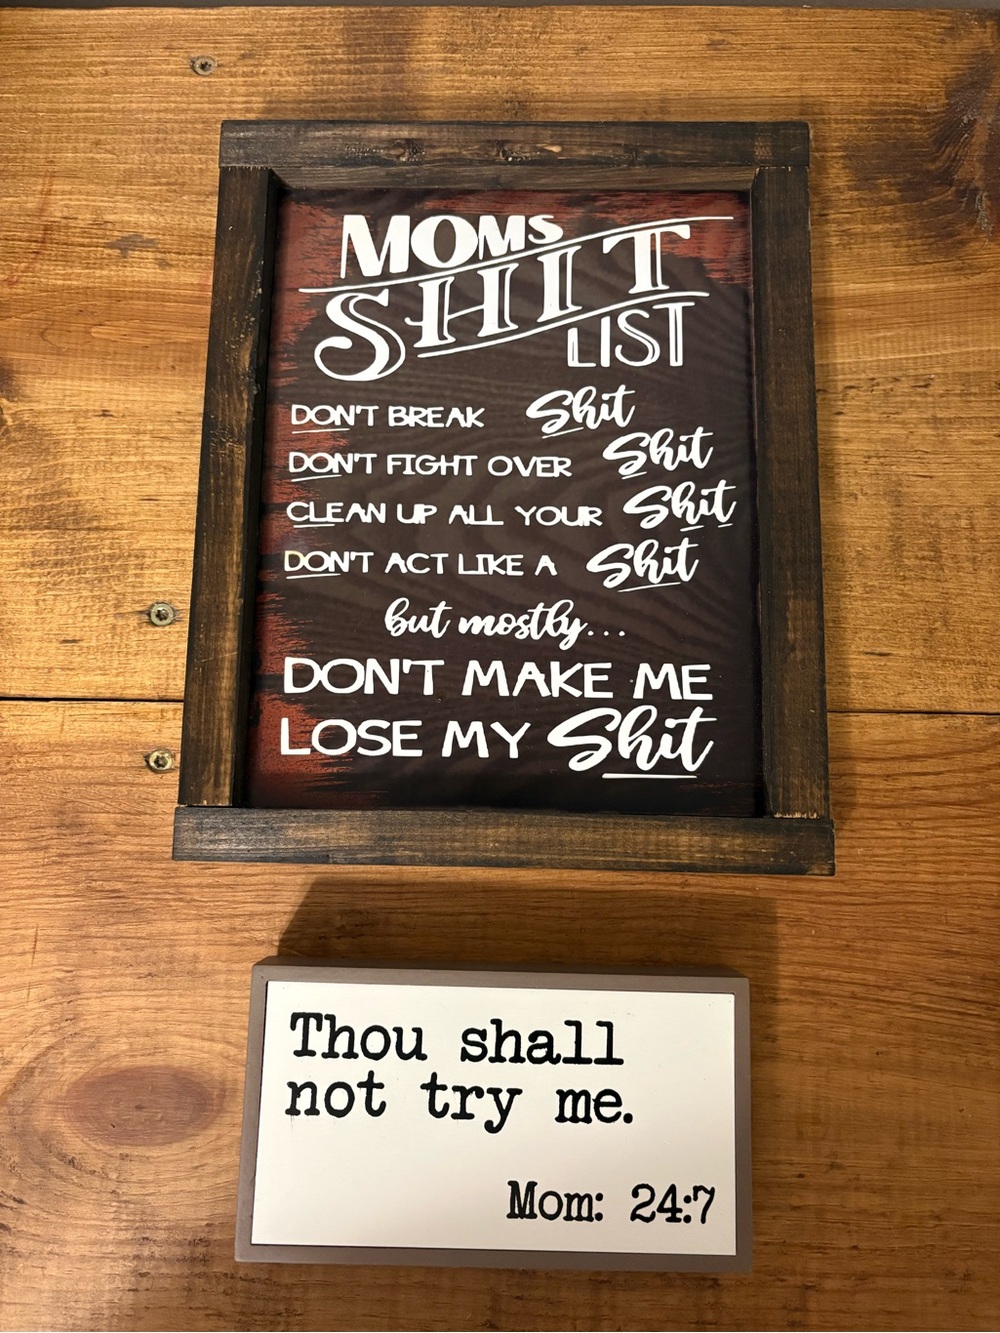 MOMS
SHIT
LIST
DON'T BREAK Shit
DON'T FIGHT OVER Shit
CLEAN UP ALL YOUR Shit
DON'T ACT LIKE A Shit
but mostly...
DON'T MAKE ME
LOSE MY Shit
Thou shall
not try me.
Mom: 24:7